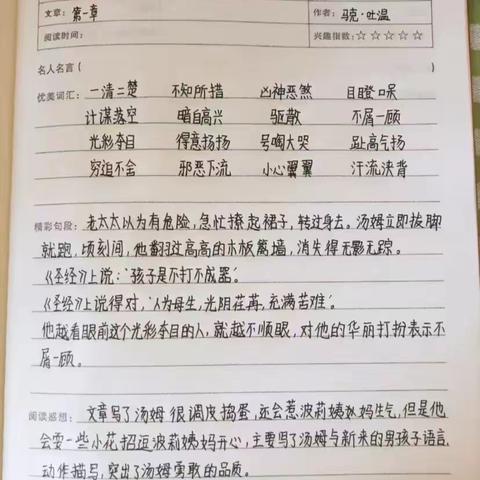 文章：第一章 作者：马克·吐温
阅读时间： 兴趣指数：☆☆☆☆☆
名人名言（
优美词汇： 一清二楚 不知所措 凶神恶煞 目瞪口呆
计谋落空 暗自高兴 驱散 不屑一顾
光彩夺目 得意扬扬 号啕大哭 趾高气扬
穷追不舍 邪恶下流 小心翼翼 汗流浃背
精彩句段：老太太以为有危险，急忙撩起裙子，转过身去。汤姆立即拔脚
就跑，顷刻间，他翻过高高的木板篱墙，消失得无影无踪。
《圣经》上说：‘孩子是不打不成器’。
《圣经》上说得对，‘人为母生，光阴荏苒，充满苦难’。
他越看眼前这个光彩夺目的人，就越不顺眼，对他的华丽打扮表示不
屑一顾。
阅读感想： 文章写了汤姆很调皮捣蛋，还会惹波莉姨妈生气，但是他
会耍一些小花招逗波莉姨妈开心，主要写了汤姆与新来的男孩子语言，
动作描写，突出了汤姆勇敢的品质。